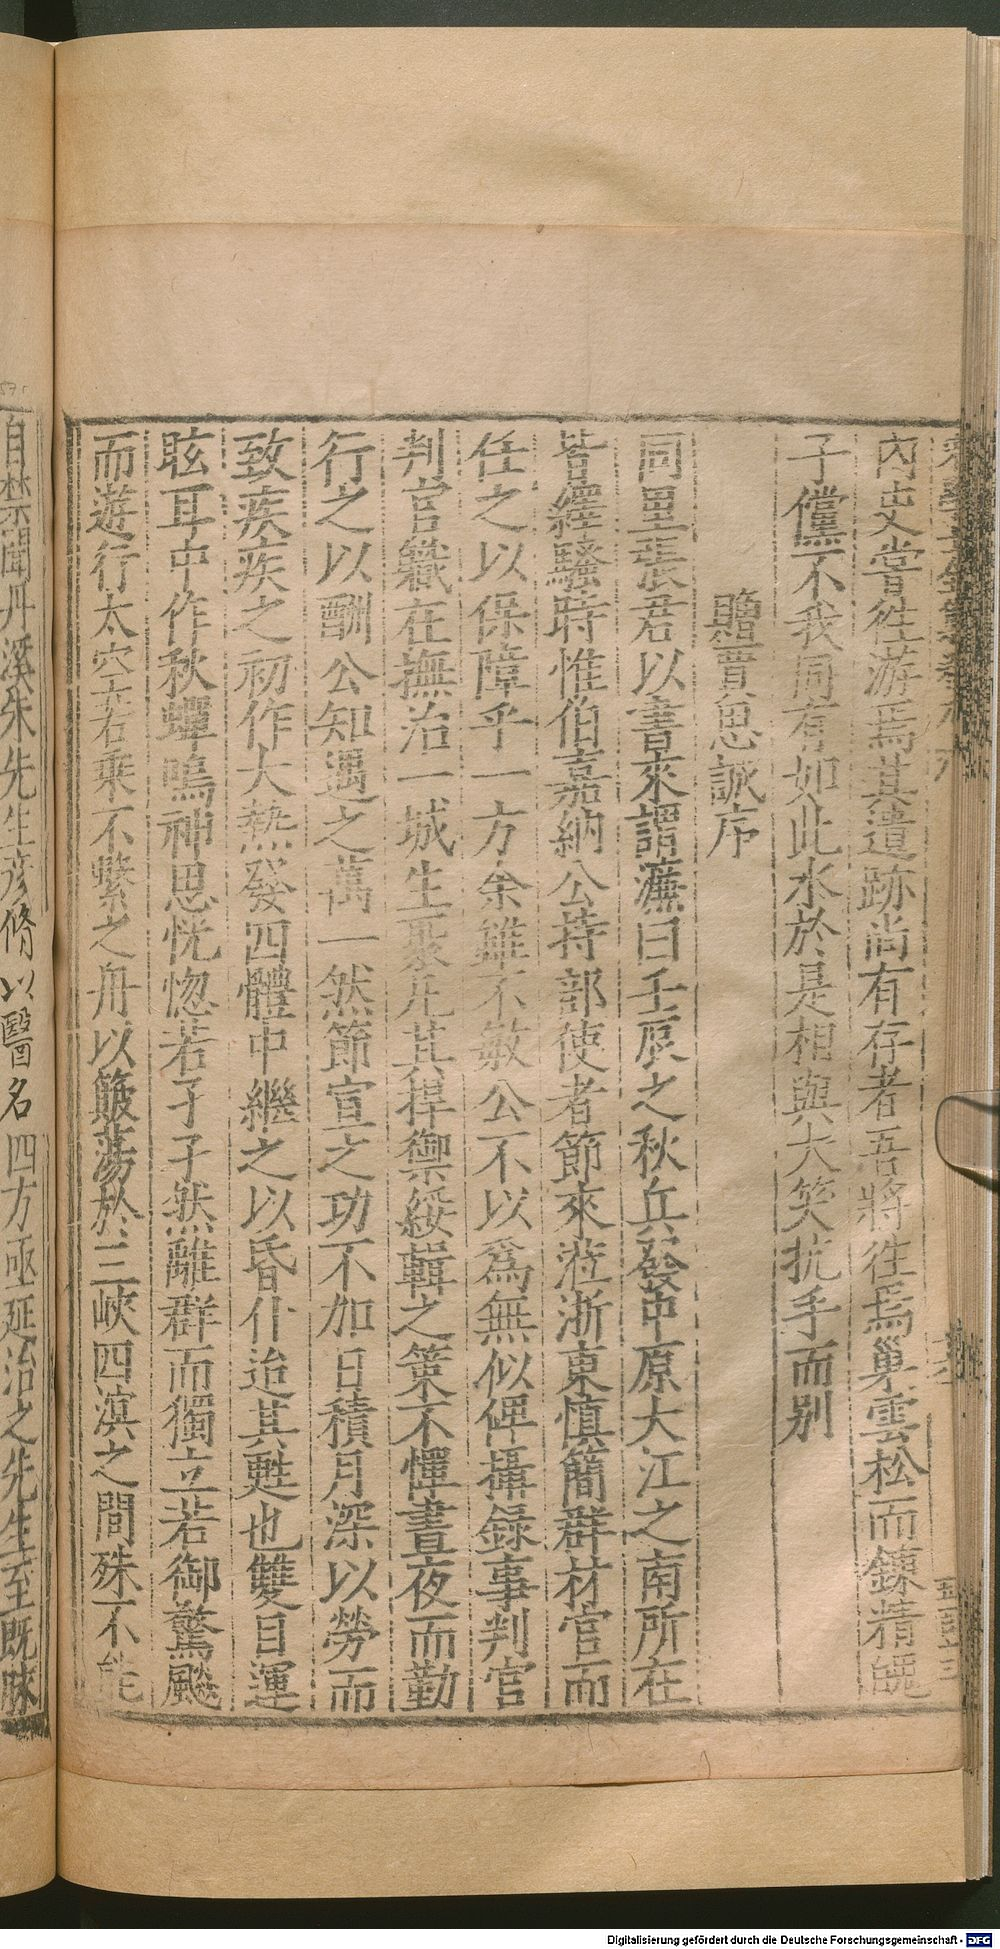 內史嘗徃游焉其遺跡尚有存者吾將徃焉巢雲松而鍊精魄
子儻不我同有如此水於是相與大笑抗手而别
贈賈思誠序
同里張君以書來謂濂曰壬辰之秋兵發中原大江之南所在
皆纆騷時惟伯嘉納公持部使者節來涖浙東慎簡群材官而
任之以保障乎一方余雖不敏公不以爲無似俾攝錄事判官
判官職在撫治一城生聚凡其捍禦綏輯之策不憚晝夜而勤
行之以酬公知遇之萬一然節宣之功不加日積月深以勞而
致疾疾之初作大熱發四體中繼之以昏仆迨其甦也雙目運
眩耳中作秋蟬鳴神思恍惚若孑孑然離群而獨立若御驚飈
而遊行太空若乗不繫之舟以簸蕩於三峽四溟之間殊不能
自禁聞丹溪朱先生彦脩以醫名四方亟延治之先生至既脉
Digitalisierung gefördert durch die Deutsche Forschungsgemeinschaft - DFG